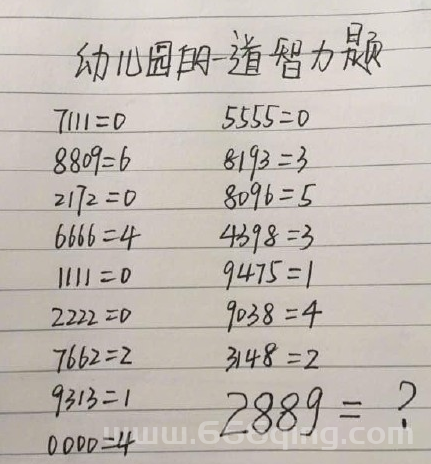 幼儿园的一道智力题
7111=0 5555=0
8809=6 8193=3
2172=0 8096=5
6666=4 4398=3
1111=0 9475=1
2222=0 9038=4
7662=2 3148=2
9313=1 2889=?
0000=4
www.666qing.com